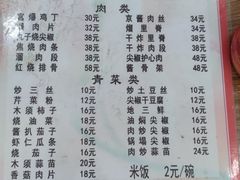 肉类
宫爆鸡丁 30元
京酱肉丝 34元
肉片 32元
熘里脊 34元
丸子烧尖椒 38元
干炸里脊 38元
焦烧肉条 38元
干炸肉段 38元
溜肉段 38元
尖椒护心肉 38元
红烧排骨 58元
酱骨架 48元
青菜类
炒三丝 10元
炒土豆丝 10元
芹菜粉 12元
尖椒干豆腐 12元
木须柿子 16元
地三鲜 16元
烧油菜 18元
油焖尖椒 16元
酱扒茄子 16元
肉炒尖椒 16元
虾仁瓜条 18元
锅塌尖椒 16元
烧茄子 16元
肉炒蒜苗 24元
木须蒜苗 20元
香菇肉片 18元
米饭 2元/碗